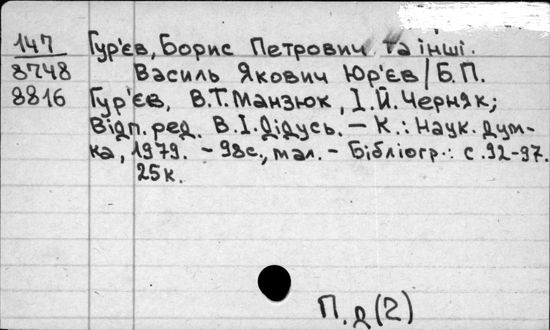 147 Гур'єв, Борис Петрович та інші.
8748 Василь Якович Юр'єв / Б.П.
8816 Гур'єв, В.Т. Манзюк, І.Й. Черняк;
Відп. ред. В.І. Дідусь. – К.: Наук. дум-
ка, 1979. – 98с., мал. – Бібліогр.: с. 92-97.
25к.
П. д (2)